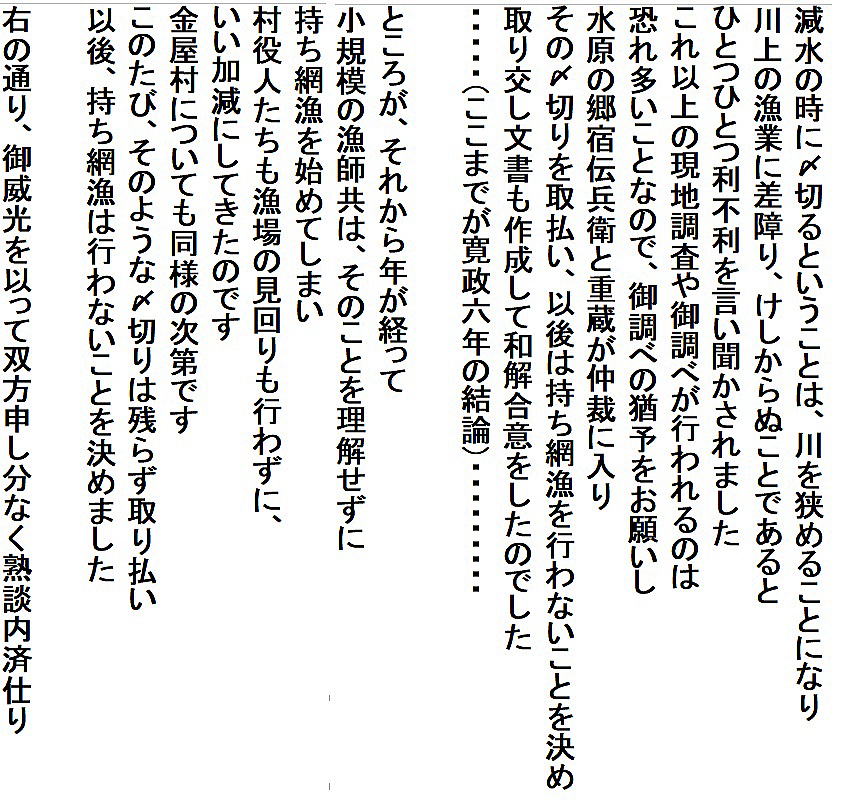 減水の時に〆切るということは、川を狭めることになり
川上の漁業に差障り、けしからぬことであると
ひとつひとつ利不利を言い聞かされました
これ以上の現地調査や御調べが行われるのは
恐れ多いことなので、御調べの猶予をお願いし
水原の郷宿伝兵衛と重蔵が仲裁に入り
その〆切りを取払い、以後は持ち網漁を行わないことを決め
取り交し文書も作成して和解合意をしたのでした
・・・・・(ここまでが寛政六年の結論)・・・・・・・・・・
ところが、それから年が経って
小規模の漁師共は、そのことを理解せずに
持ち網漁を始めてしまい
村役人たちも漁場の見回りも行わずに、
いい加減にしてきたのです
金屋村についても同様の次第です
このたび、そのような〆切りは残らず取り払い
以後、持ち網漁は行わないことを決めました
右の通り、御威光を以って双方申し分なく熟談内済仕り